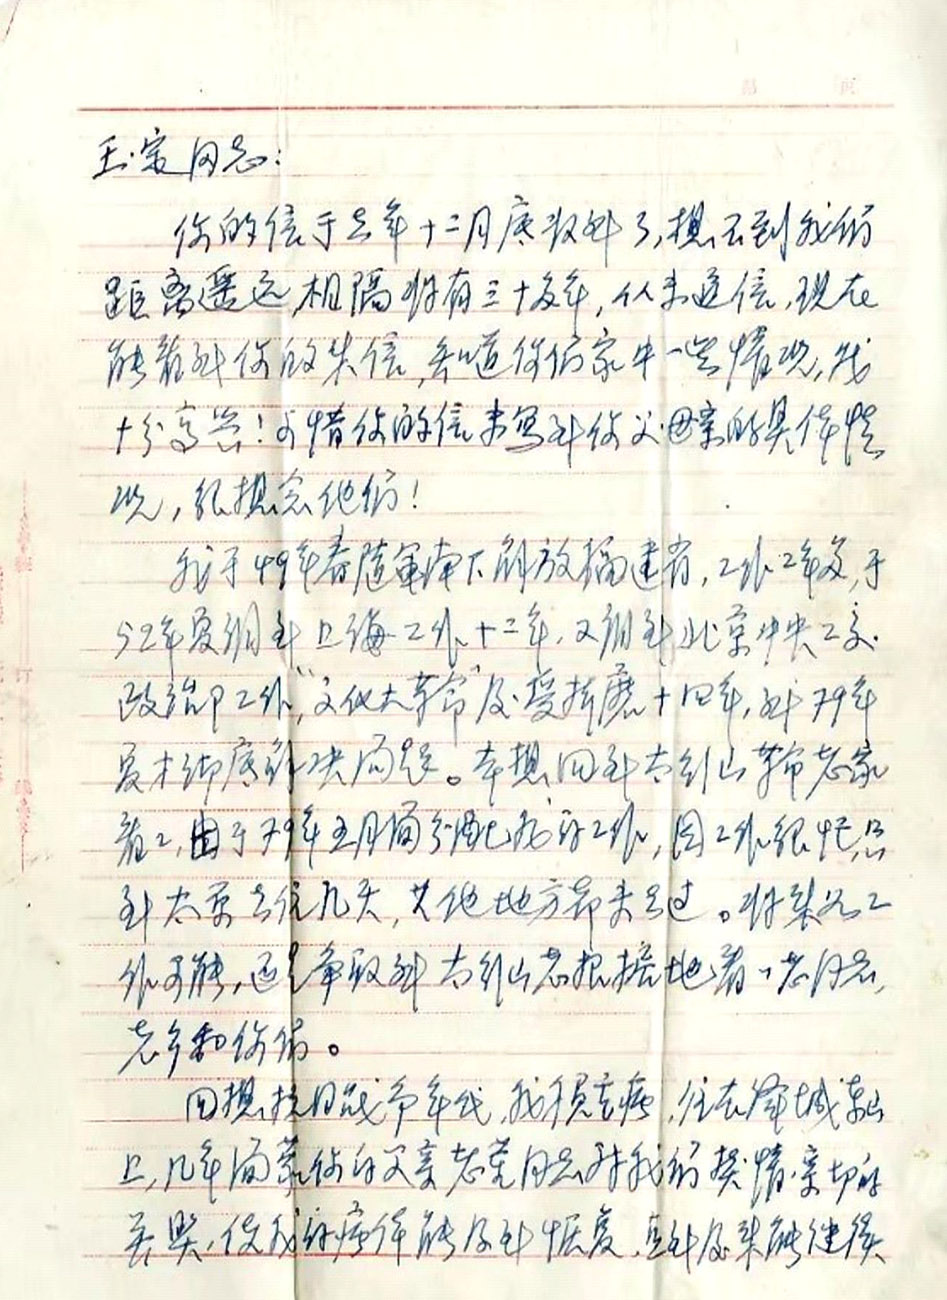 第 页
玉宝同志:
你的信于去年十二月底收到了,想不到我们
距离遥远,相隔将有三十多年,从未通信,现在
能看到你的来信,知道你们家中一些情况,我
十分高兴!可惜你的信未写到你父母亲的具体情
况,很想念他们!
我于49年春随军南下解放福建省,工作2年多,于
52年夏调到上海工作十二年,又调到北京中央工交
政治部工作,"文化大革命"及受折磨十四年,到79年
夏才彻底解决问题。本想回到太行山革命老家
看看,由于79年五月间分配我的工作,因工作很忙,只
到太原去住几天,其他地方都未去过。将来如工
作可能,还是争取到太行山老根据地看一看老同志,
老乡和你们。
回想抗日战争年代,我积劳病,住在 城东山
上,几年间蒙你的父亲老荣同志对我们热情亲切的
关照,使我的病体能及到恢复,直到后来能继续
装订线